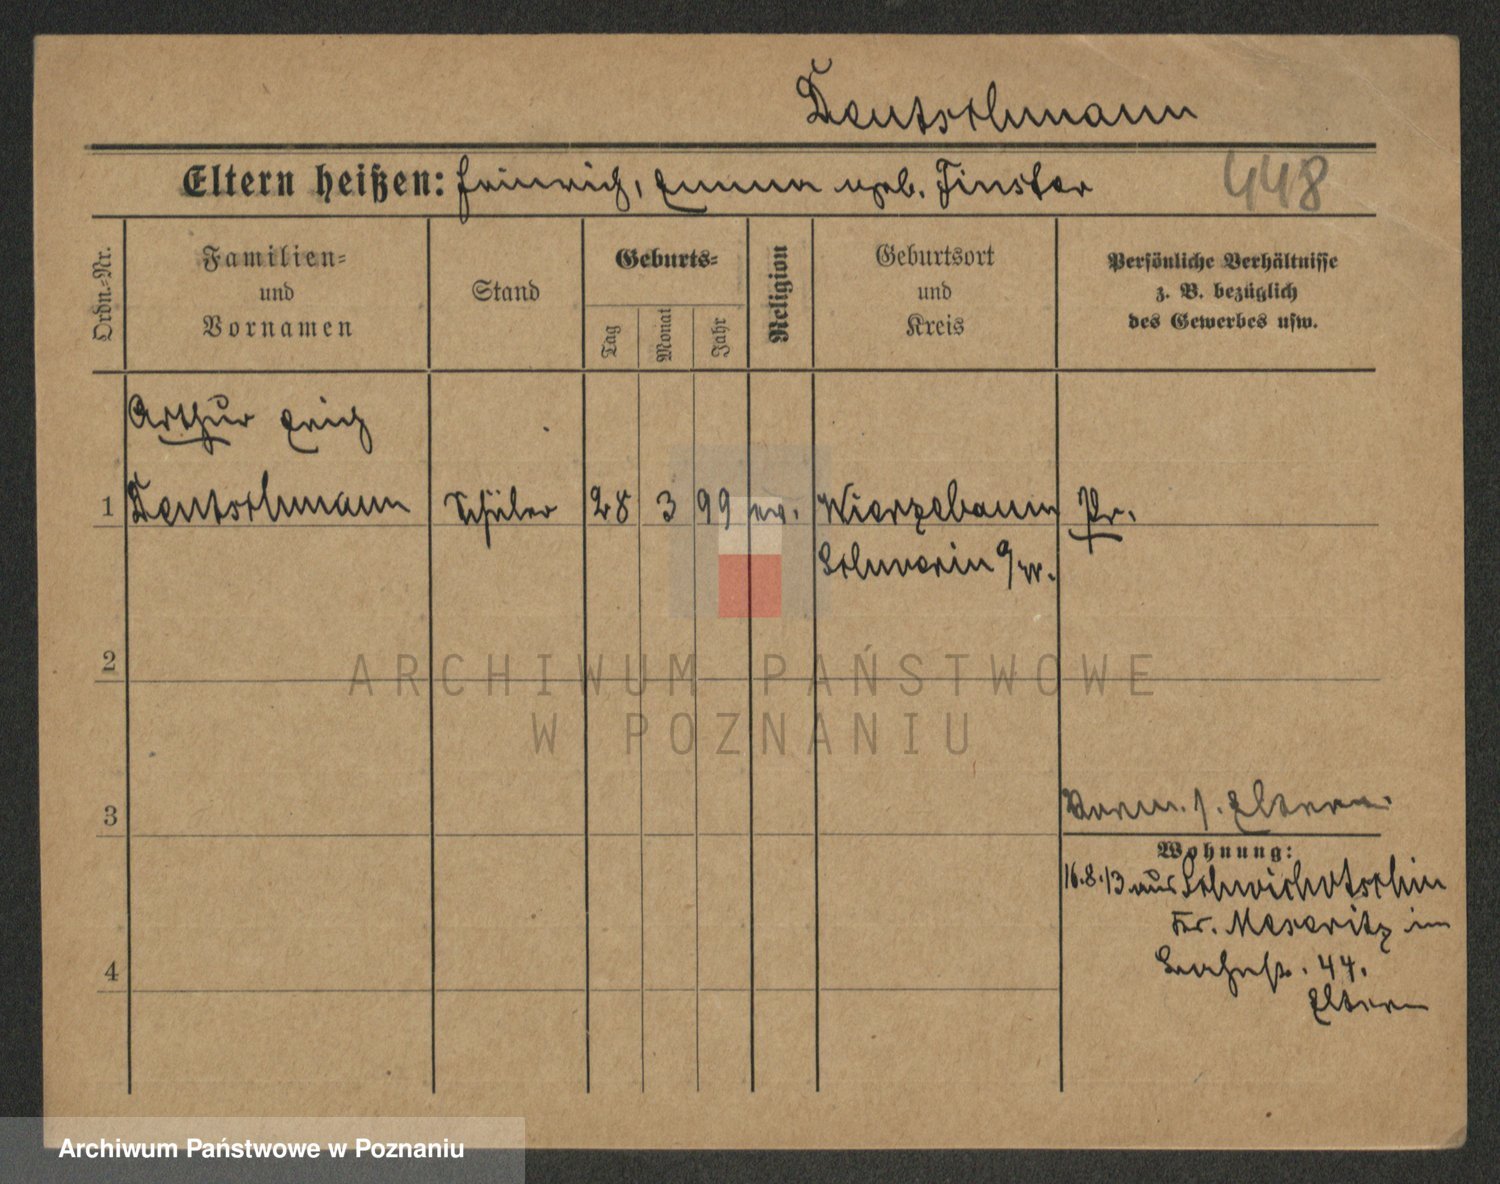 Deutschmann
Eltern heißen: Heinrich, Emma geb. Finster
448
Ordn.-Nr.
Familien-
und
Vornamen
Stand
Geburts-
Tag
Monat
Jahr
Religion
Geburtsort
und
Kreis
Persönliche Verhältnisse
z. B. bezüglich
des Gewerbes usw.
Arthur Erich
1 Deutschmann Schüler 28 3 99 ev. Wierzebaum Pr.
Schwerin a/W.
2
ARCHIWUM PAŃSTWOWE
W POZNANIU
3
Verm. s. Eltern
Wohnung:
16.8.13 aus Schwichotschin
Kr. Meseritz in
4
44.
Eltern
Archiwum Państwowe w Poznaniu